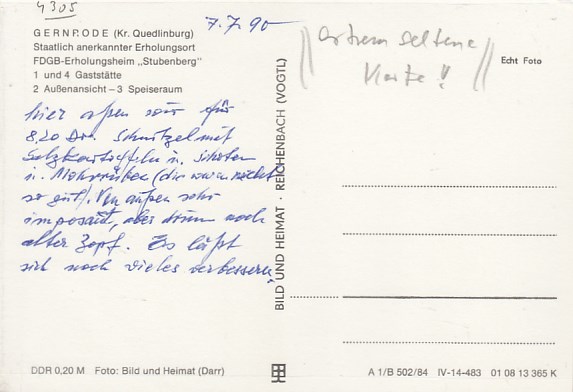 4305
7.7.90
GERNRODE (Kr. Quedlinburg)
Staatlich anerkannter Erholungsort
FDGB-Erholungsheim „Stubenberg"
1 und 4 Gaststätte
2 Außenansicht – 3 Speiseraum
extrem seltene
Karte!!
Echt Foto
hier aßen wir für
8,20 DM. Schnitzel mit
Salzkartoffeln u. Schoten
u. Mohrrüben (die waren nicht
so gut). Von außen sehr
imposant, aber drinn noch
alter Zopf. Es läßt
sich noch vieles verbessern.
BILD UND HEIMAT · REICHENBACH (VOGTL)
DDR 0,20 M Foto: Bild und Heimat (Darr)
A 1/B 502/84 IV-14-483 01 08 13 365 K